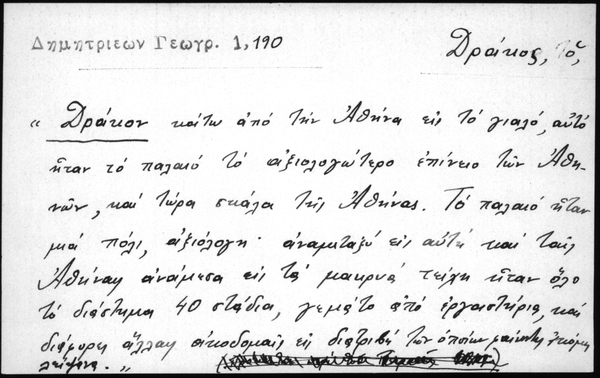 Δημητριεων Γεωγρ. 1, 190
Δράκος, Τό,
« Δράκον κάτω ἀπό τήν Ἀθήνα εἰς τό γιαλό, αὐτό
ἦταν τό παλαιό τό ἀξιολογώτερο ἐπίνειο τῶν Ἀθη-
νῶν, καί τώρα σκάλα τῆς Ἀθήνας. Τό παλαιό ἦταν
μιά πόλι, ἀξιόλογη· ἀναμεταξύ εἰς αὐτή καί ταῖς
Ἀθήναις ἀνάμεσα εἰς τά μακρυά τείχη ἦταν ὅλο
τό διάστημα 40 στάδια, γεμάτο ἀπό ἐργαστήρια, καί
διάφοραις ἄλλαις οἰκοδομαῖς εἰς διατριβή τῶν ὁποίων ἀκόμη
λείψανα. »